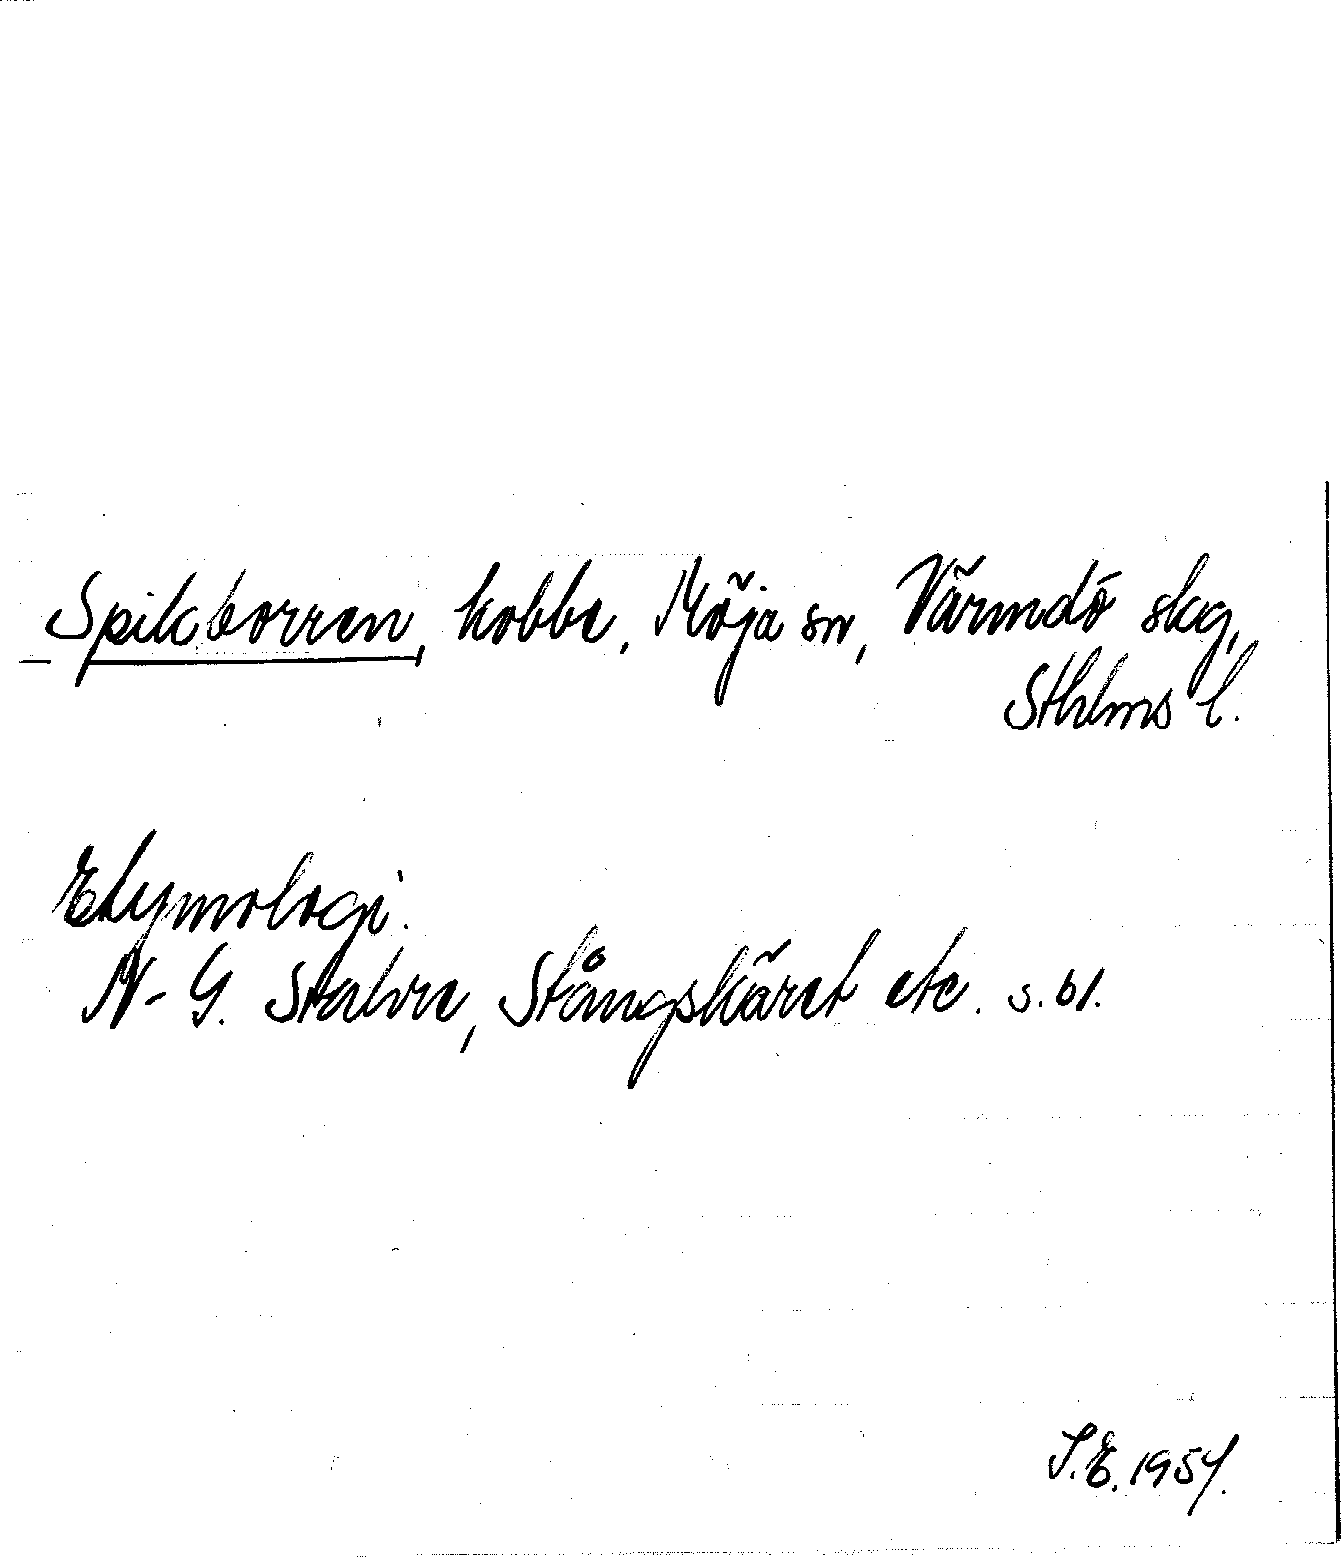 Spikborren, kobbe, Möja sn, Värmdö skg,
Sthlms l.
Etymologi.
N-G. Stahre, Stångskäret etc. s. 61.
S.E. 1954.